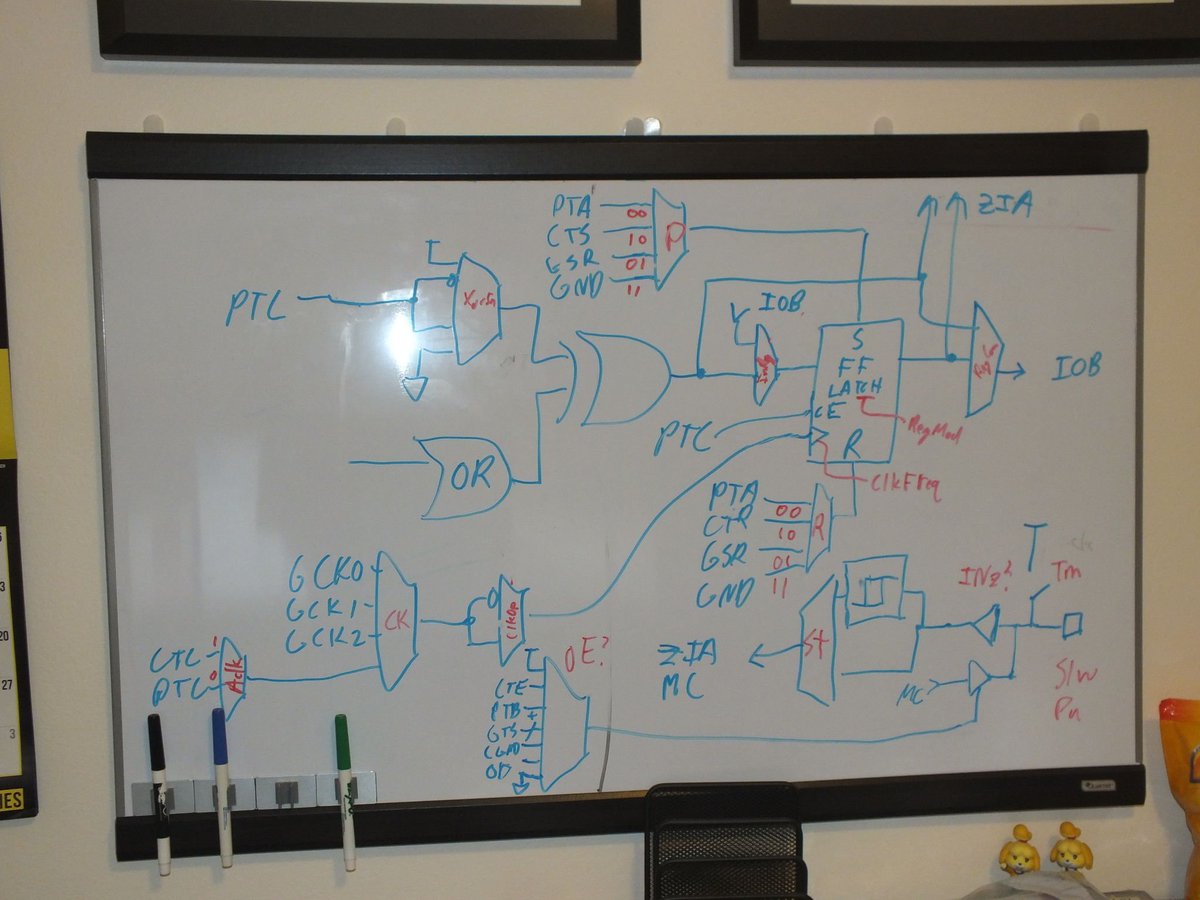 PTA 00
CTS 10
GSR 01
GND 11
P
ZIA
PTC
XorIn
IOB
IOB
S
FF
LATCH
CE
R
PTC
RegMod
ClkFreq
OR
PTA 00
CTR 10
GSR 01
GND 11
R
GCK0
GCK1
GCK2
CK
ClkOp
CTC 1
PTC 0
Aclk
OE?
CTE
PTB
GTS
CGND
OD
St
ZIA
MC
INz?
Tm
MC
Slw
Pu
20
27
3
IES